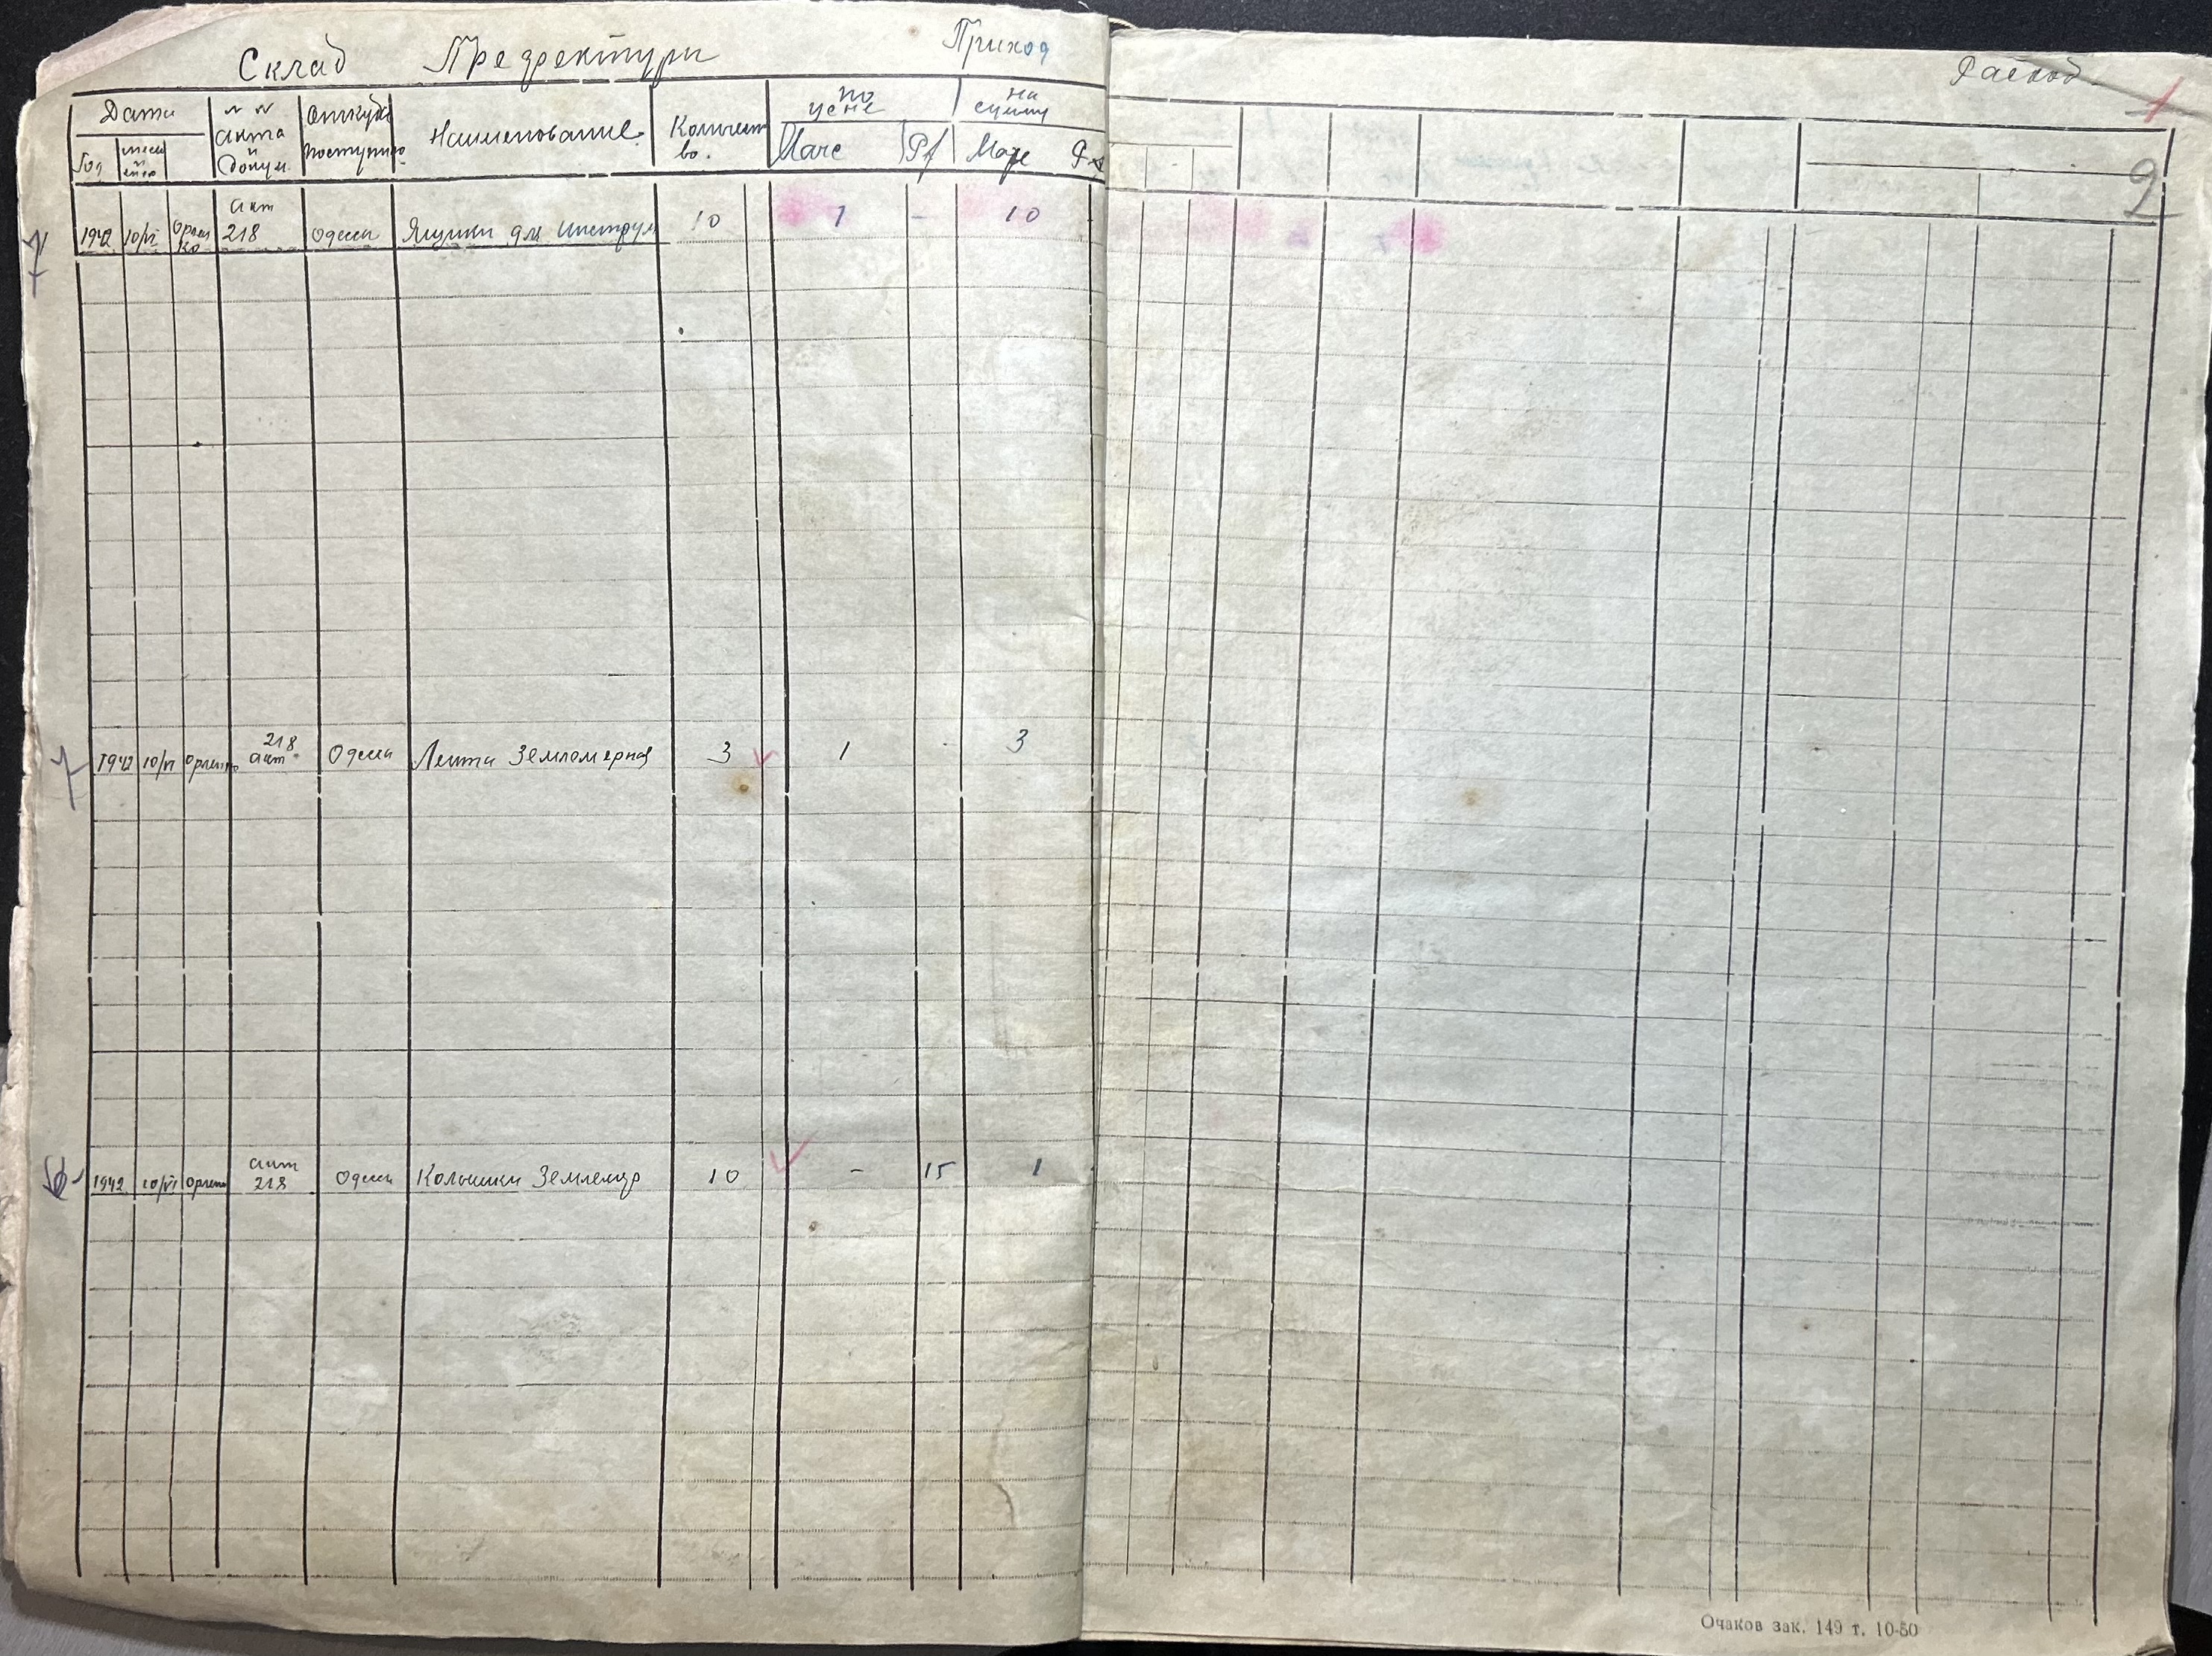 Склад Префектуры Приход
Расход
1
2
Дата
Год
№ №
акта
и
докум.
Откуда
поступило
Наименование
Количест
во.
по
цене
на
сумму
Марк Pf Марк
1942 10/VI акт 218 Одесса Ящики для Инструм 10 1 - 10
1942 10/VI 218 акт Одесса Лента Землемерная 3 1 3
1942 10/VI акт 218 Одесса Колышки Землемер 10 - 15 1
Очаков зак. 149 т. 10-50